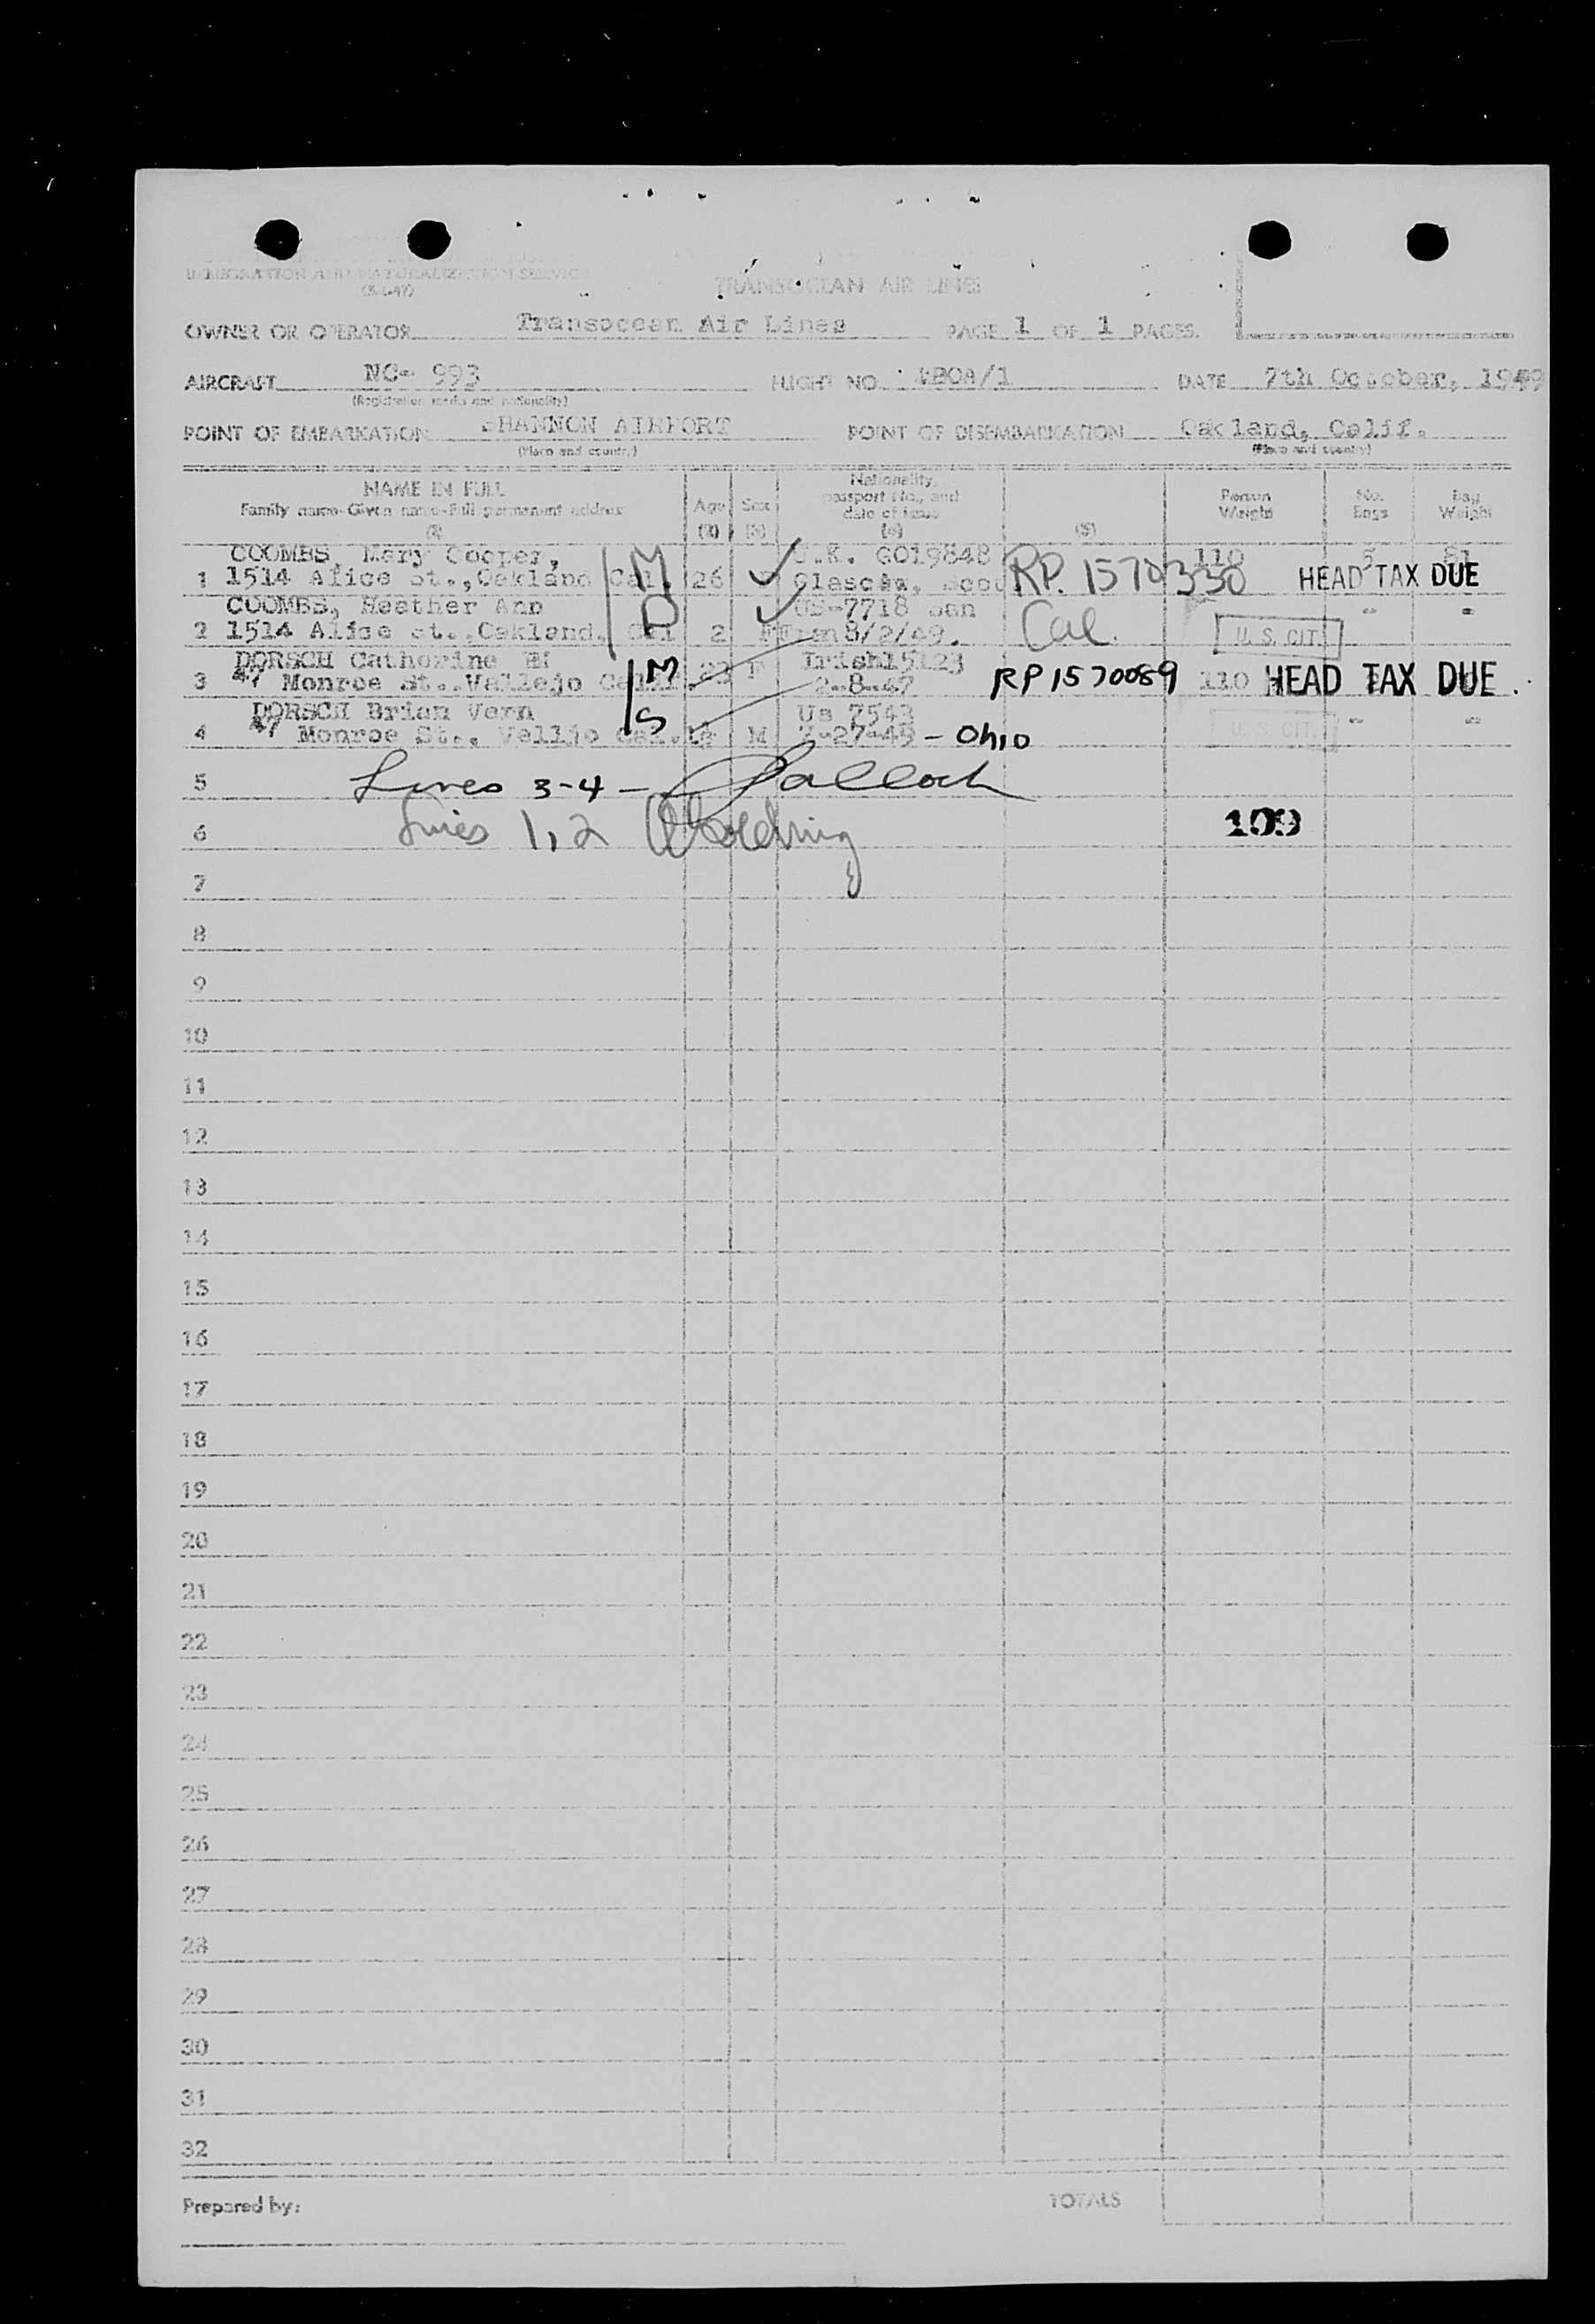 IMMIGRATION AND NATURALIZATION SERVICE
TRANSOCEAN AIR LINES
OWNER OR OPERATOR Transocean Air Lines PAGE 1 OF 1 PAGES
AIRCRAFT NC- 993 FLIGHT NO. DATE 7th October, 1949
(Registration marks and nationality)
POINT OF EMBARKATION SHANNON AIRPORT POINT OF DISEMBARKATION Oakland, Calif.
(Place and country) (Place and country)
NAME IN FULL Nationality, passport No., and date of issue Person Weight No. Bags Bag Weight
Family name-Given name-Full permanent address Age Sex
(1) (2) (3) (4) (5)
COOMBS, Mary Cooper, M U.K. G019848 110 81
1 1514 Alice St., Oakland Cal. 26 F Glascow, RP. 1570330 HEAD TAX DUE
COOMBS, Heather Ann D US-7718 San - -
2 1514 Alice st., Oakland, Cal 2 F 8/2/49. Cal. U. S. CIT.
DORSCH Catherine M Irish
3 47 Monroe St., Vallejo Calif 23 F 2-8-47 RP 1570089 110 HEAD TAX DUE.
DORSCH Brian Vern S Us 7543 U. S. CIT. - -
4 47 Monroe St., Vallejo M - Ohio
5 Lines 3-4 -
6 Lines 1,2 109
7
8
9
10
11
12
13
14
15
16
17
18
19
20
21
22
23
24
25
26
27
28
29
30
31
32
Prepared by: TOTALS